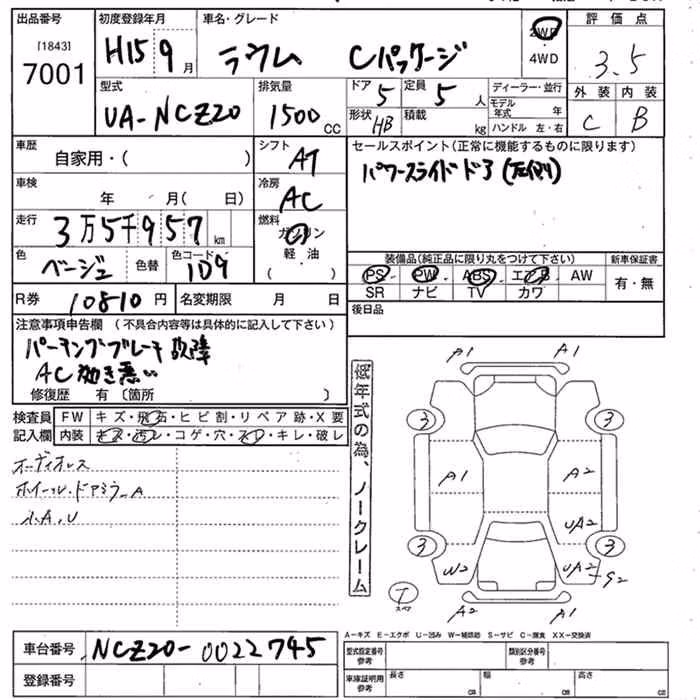 出品番号 初度登録年月 車名・グレード 2WD 評価点
[1843] H15 9月 ラウム Cパッケージ 4WD 3.5
7001 型式 排気量 ドア 5 定員 5人 ディーラー・並行 外装 内装
UA-NCZ20 1500CC 形状 HB 積載 kg モデル年式 年 C B
ハンドル 左・右
車歴 シフト AT セールスポイント(正常に機能するものに限ります)
自家用・( ) パワースライドドア(左側)
車検 年 月( 日) 冷房 AC
走行 3万5千957km 燃料 ガソリン
軽・油
( )
色 ベージュ 色替 色コード 1D9 装備品(純正品に限り丸をつけて下さい) 新車保証書
PS PW ABS エアB AW 有・無
SR ナビ TV カワ
R券 10810円 名変期限 月 日 後日品
注意事項申告欄(不具合内容等は具体的に記入して下さい)
パーキングブレーキ故障
AC効き悪い
修復歴 有〔箇所 〕
検査員 FW キズ・飛石・ヒビ割・リペア跡・X要
記入欄 内装 キズ・汚レ・コゲ・穴・スレ・キレ・破レ
オーディオレス
ホイール・ドアミラーA
小A,U
低年式の為、ノークレーム
A1 A1
3 3
A1 A2
UA2
3 3
W2 UA2 S2
T
スペア
A2 A1
A-キズ E-エクボ U-凹み W-補修跡 S-サビ C-腐食 XX-交換済
車台番号 NCZ20-0022745 型式指定番号 参考 類別区分番号 参考
登録番号 車庫証明用 参考 長さ cm 幅 cm 高さ cm